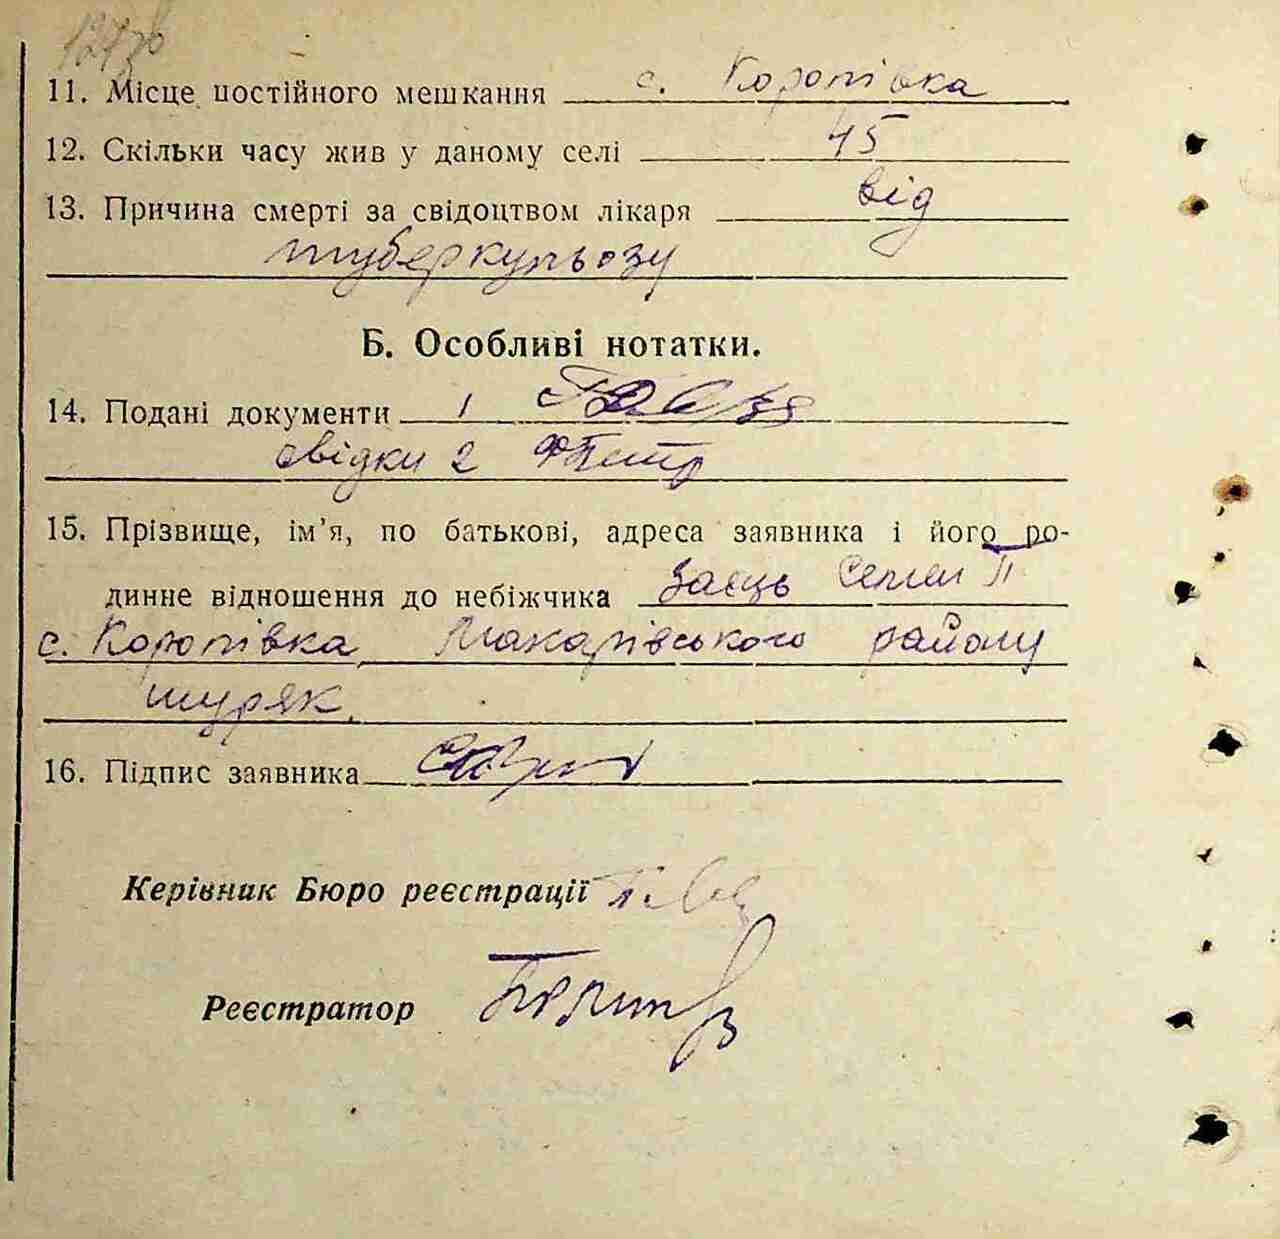 11. Місце постійного мешкання с. Коропівка
12. Скільки часу жив у даному селі 45
13. Причина смерті за свідоцтвом лікаря від
туберкульозу
Б. Особливі нотатки.
14. Подані документи 1
свідки 2
15. Прізвище, ім'я, по батькові, адреса заявника і його ро-
динне відношення до небіжчика Заєць Семен П
с. Коропівка Макарівського району
шуряк.
16. Підпис заявника
Керівник Бюро реєстрації
Реєстратор